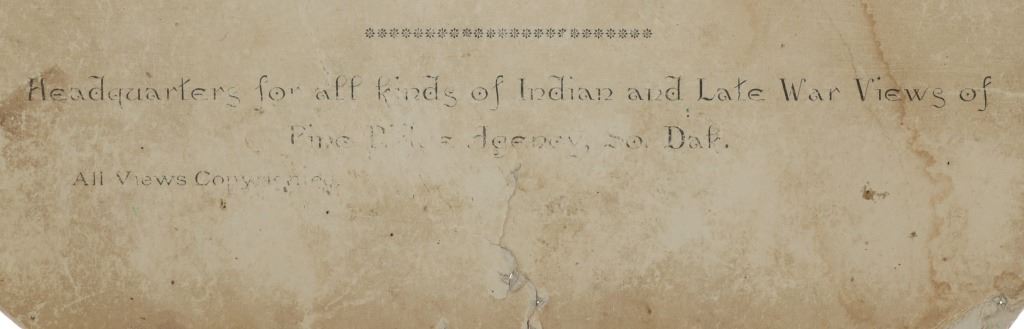 Headquarters for all kinds of Indian and Late War Views of
Pine Ridge Agency, So. Dak.
All Views Copyrighted.